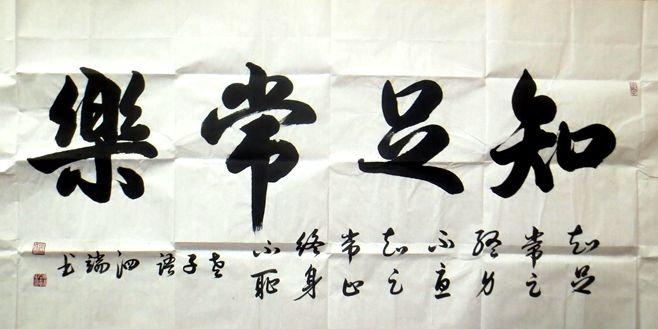 知足常樂
知足
常足
終身
不辱
知止
常止
終身
不耻
老子語
泗瑞书